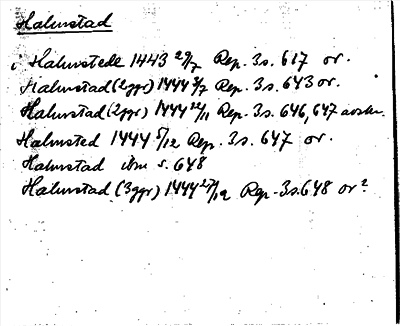 Halmstad
i Halmstede 1443 29/7 Rep. 3 s. 617 or.
Halmstad (2ggr) 1444 3/7 Rep. 3 s. 643 or.
Halmstad (2ggr) 1444 12/11 Rep. 3 s. 646, 647 avskr.
Halmsted 1444 5/12 Rep. 3 s. 647 or.
Halmstad ibm s. 648
Halmstad (3ggr) 1444 27/12 Rep. 3 s. 648 or?